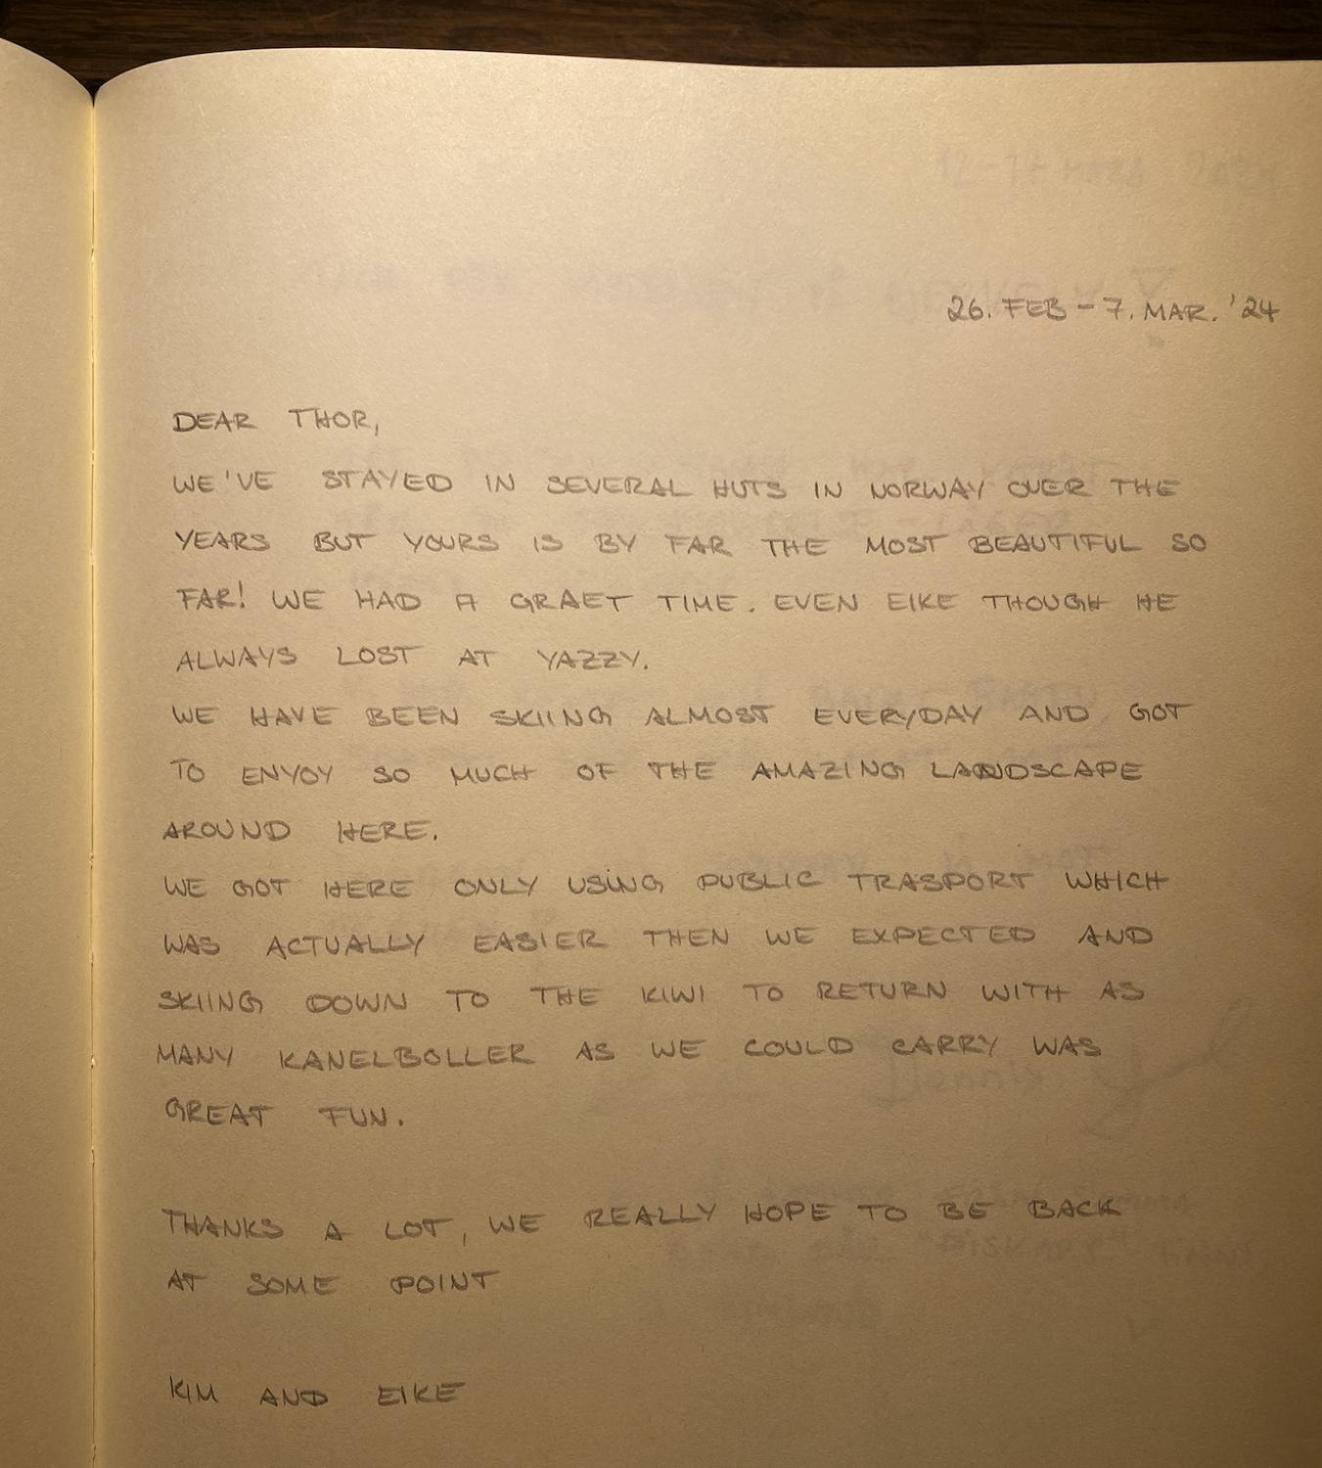 26. FEB - 7. MAR. '24
DEAR THOR,
WE'VE STAYED IN SEVERAL HUTS IN NORWAY OVER THE
YEARS BUT YOURS IS BY FAR THE MOST BEAUTIFUL SO
FAR! WE HAD A GRAET TIME. EVEN EIKE THOUGH HE
ALWAYS LOST AT YAZZY.
WE HAVE BEEN SKIING ALMOST EVERYDAY AND GOT
TO ENYOY SO MUCH OF THE AMAZING LANDSCAPE
AROUND HERE.
WE GOT HERE ONLY USING PUBLIC TRASPORT WHICH
WAS ACTUALLY EASIER THEN WE EXPECTED AND
SKIING DOWN TO THE KIWI TO RETURN WITH AS
MANY KANELBOLLER AS WE COULD CARRY WAS
GREAT FUN.
THANKS A LOT, WE REALLY HOPE TO BE BACK
AT SOME POINT
KIM AND EIKE